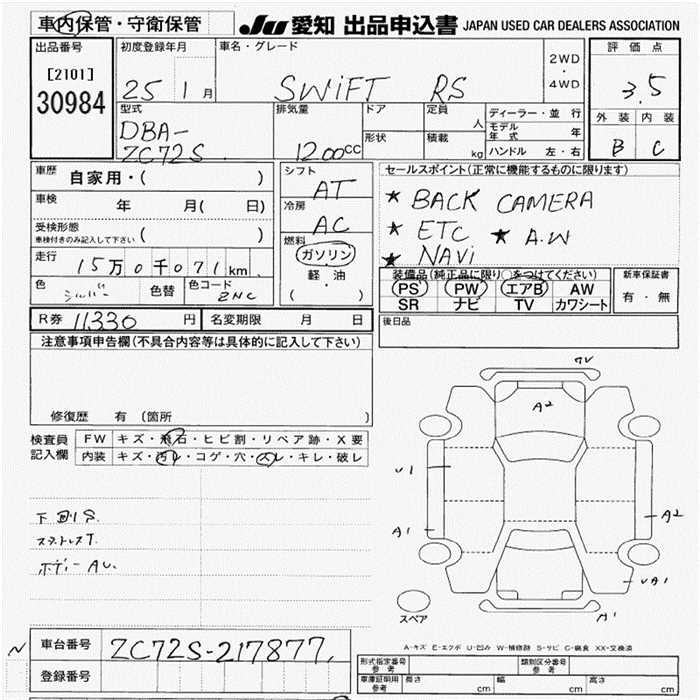 車内保管・守衛保管
JU 愛知 出品申込書 JAPAN USED CAR DEALERS ASSOCIATION
出品番号
[2101]
30984
初度登録年月
25 1 月
車名・グレード
SWiFT RS
2WD
・
4WD
評価点
3.5
外装 内装
B C
型式
DBA-
ZC72S
排気量
1200CC
ドア
形状
定員
人
積載
kg
ディーラー・並行
モデル年式 年
ハンドル 左・右
車歴
自家用・( )
車検
年 月( 日)
受検形態
車検付きのみ記入して下さい ( )
走行
15万0千071km
色
シルバー
色替
色コード
ZNC
シフト
AT
冷房
AC
燃料
ガソリン
軽・油
( )
セールスポイント(正常に機能するものに限ります)
★ BACK CAMERA
★ ETC ★ A.W
★ NAVi
装備品(純正品に限り○をつけてください)
PS PW エアB AW
SR ナビ TV カワシート
新車保証書
有・無
R券 11,330 円
名変期限 月 日
後日品
注意事項申告欄(不具合内容等は具体的に記入して下さい)
修復歴 有 (箇所 )
検査員
記入欄
FW キズ・飛石・ヒビ割・リペア跡・X要
内装 キズ・汚レ・コゲ・穴・スレ・キレ・破レ
下回りS.
スタットレスT.
ボディーAU.
UV
A2
U1
A1
A2
UA1
A1
スペア
A-キズ E-エクボ U-凹み W-補修跡 S-サビ C-腐食 XX-交換済
N
車台番号
ZC72S-217877
登録番号
形式指定番号
参考
類別区分番号
参考
車庫証明用
参考
長さ cm 幅 cm 高さ cm